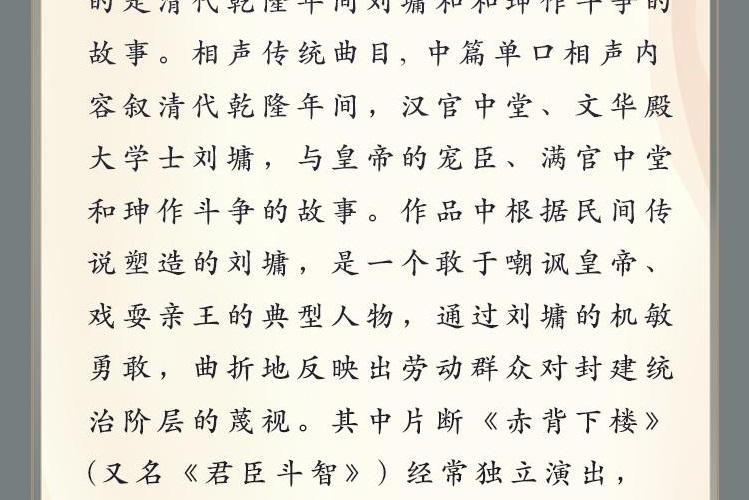 的是清代乾隆年间刘墉和和珅作斗争的
故事。相声传统曲目，中篇单口相声内
容叙清代乾隆年间，汉官中堂、文华殿
大学士刘墉，与皇帝的宠臣、满官中堂
和珅作斗争的故事。作品中根据民间传
说塑造的刘墉，是一个敢于嘲讽皇帝、
戏耍亲王的典型人物，通过刘墉的机敏
勇敢，曲折地反映出劳动群众对封建统
治阶层的蔑视。其中片断《赤背下楼》
(又名《君臣斗智》）经常独立演出，